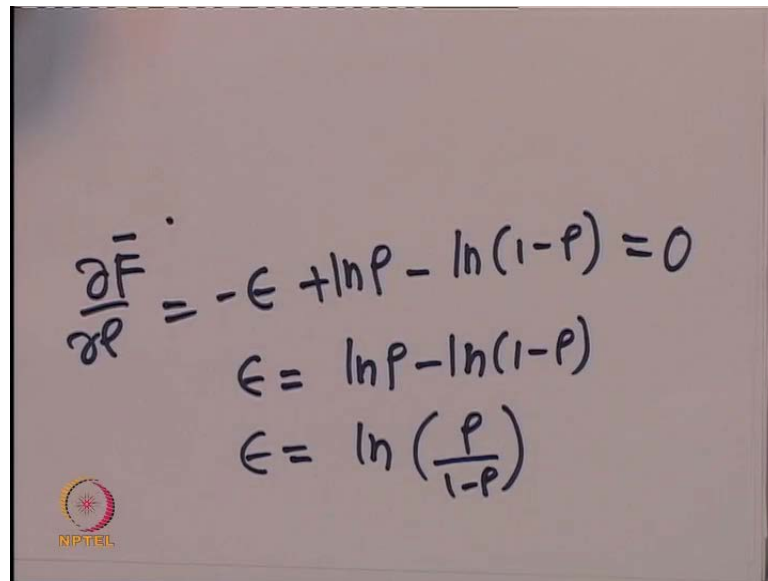 ∂F̄/∂ρ = -ϵ + lnρ - ln(1-ρ) = 0
ϵ = lnρ - ln(1-ρ)
ϵ = ln(ρ/(1-ρ))
NPTEL